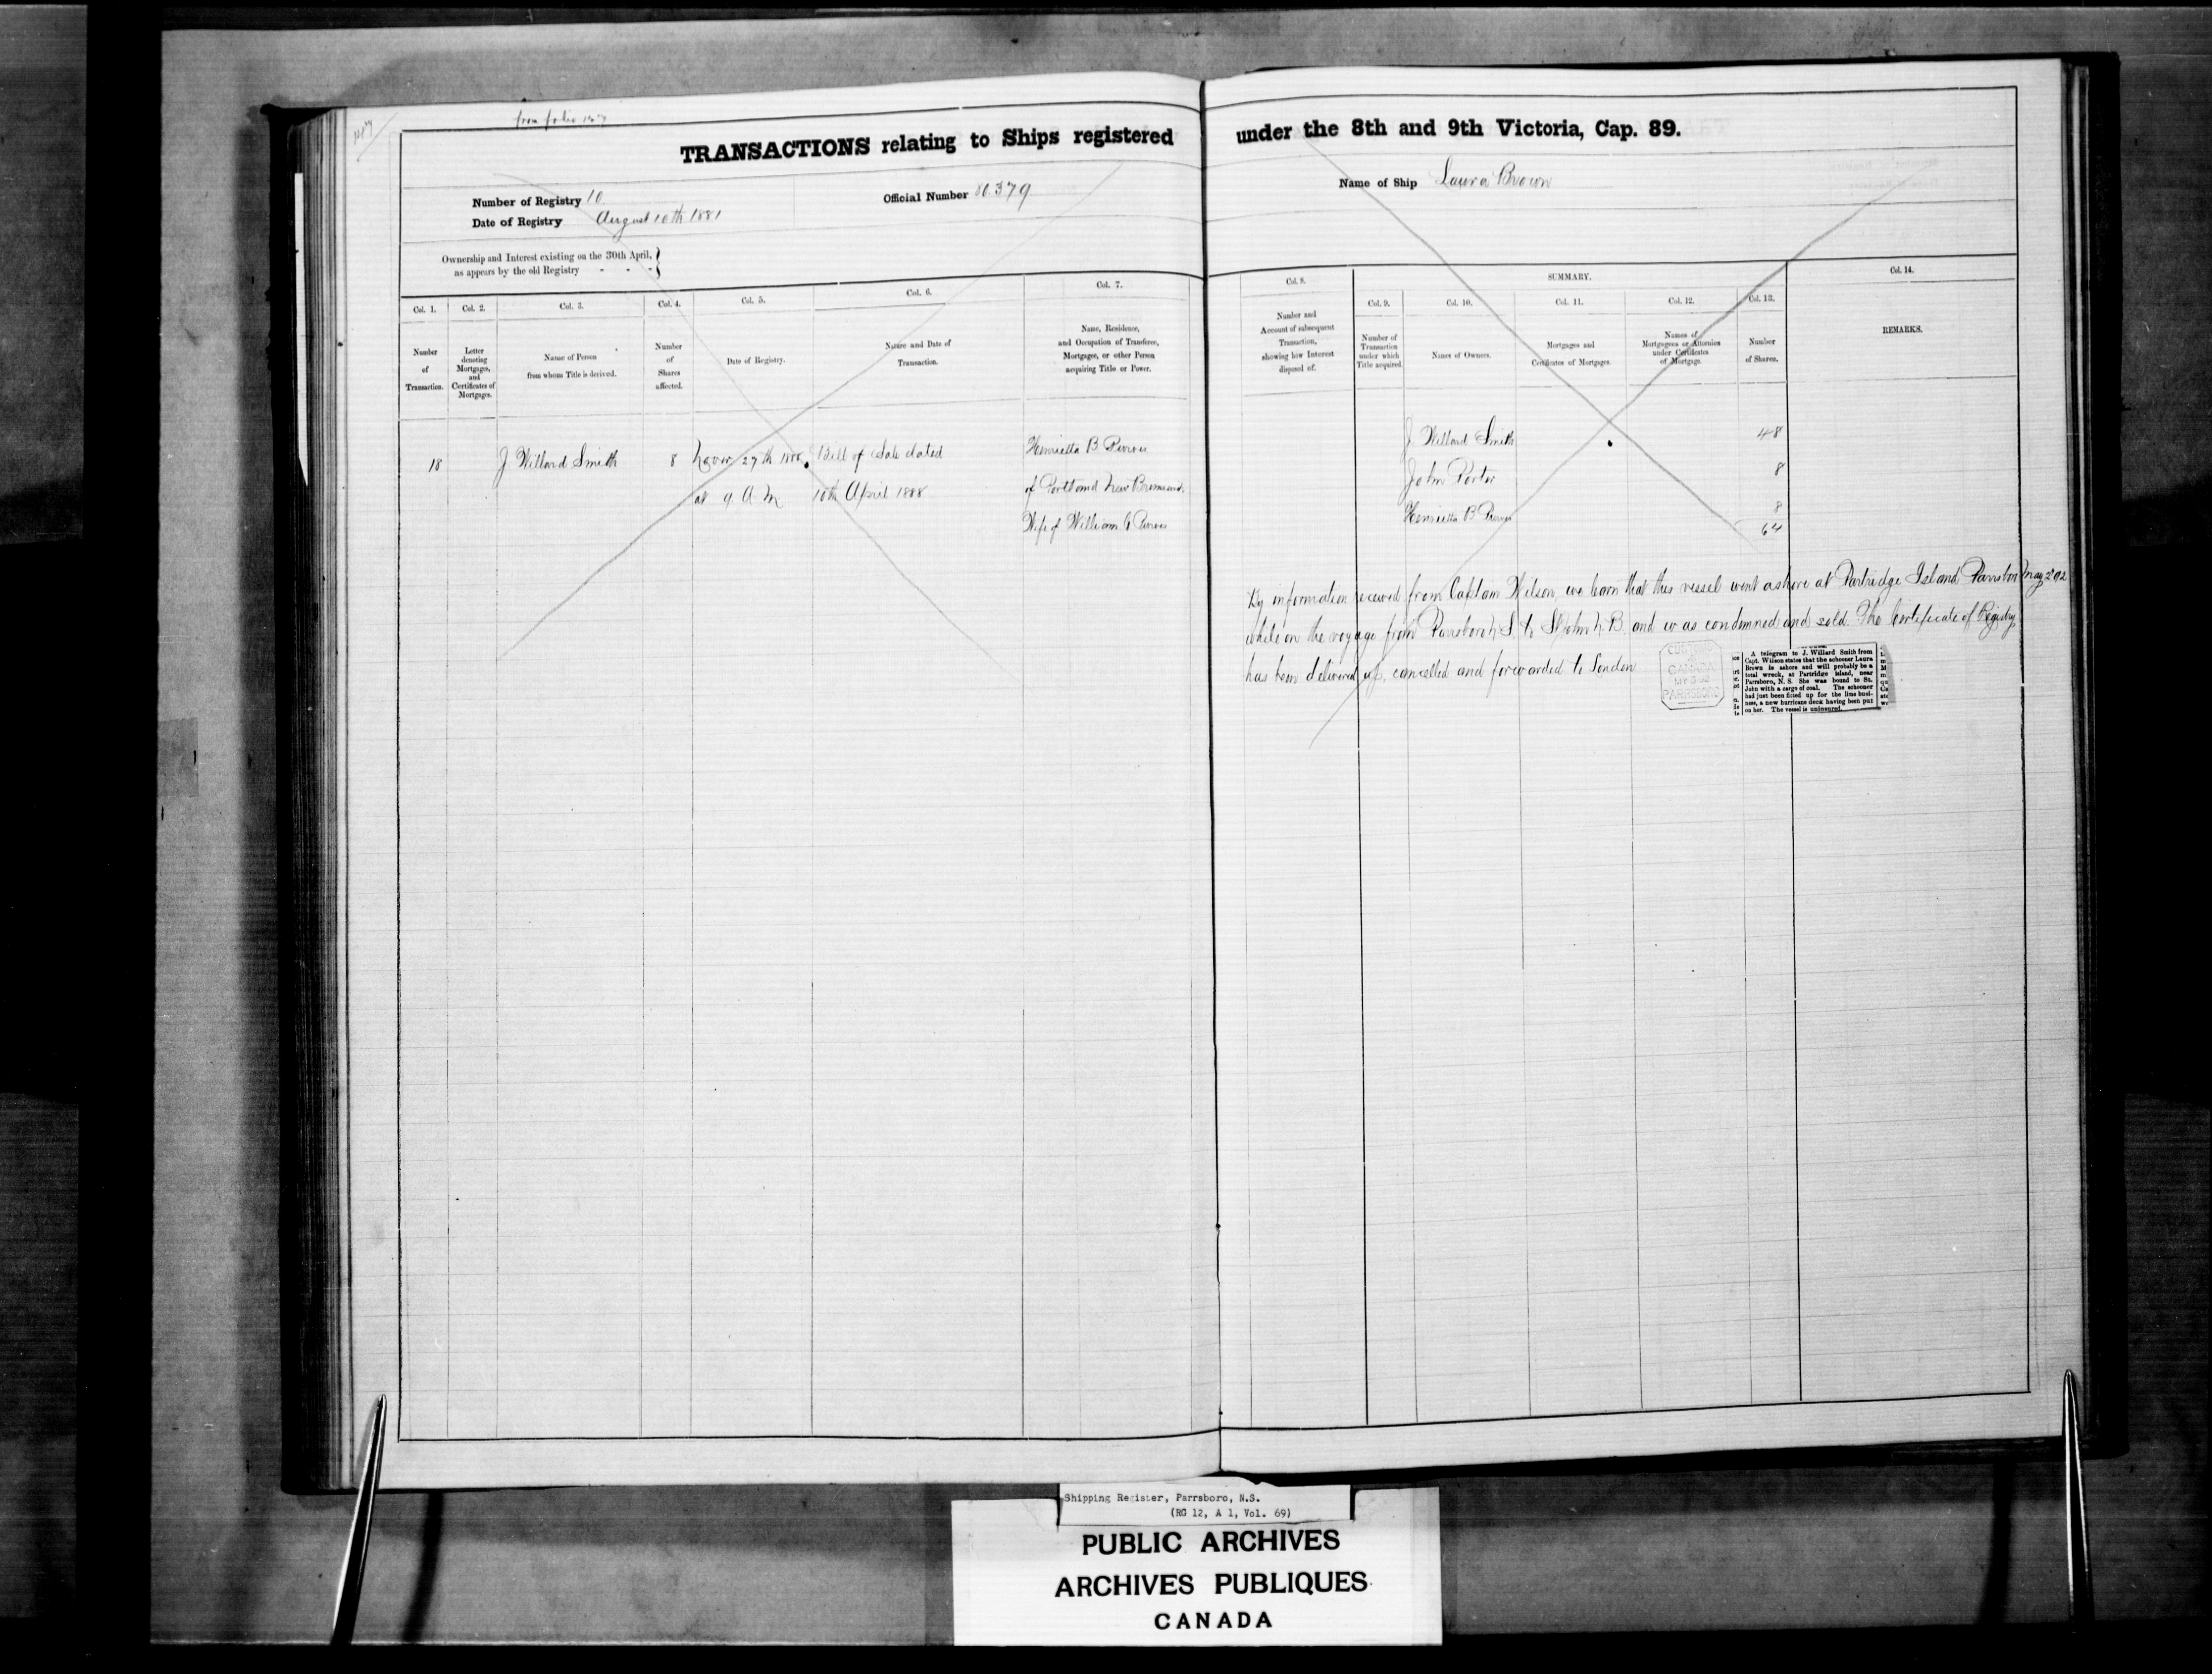 from folio
TRANSACTIONS relating to Ships registered under the 8th and 9th Victoria, Cap. 89.
Number of Registry 10
Official Number 80.379
Name of Ship Laura Brown
Date of Registry August 10th 1881
Ownership and Interest existing on the 30th April,
as appears by the old Registry - - -
SUMMARY.
Col. 1.
Col. 2.
Col. 3.
Col. 4.
Col. 5.
Col. 6.
Col. 7.
Col. 8.
Col. 9.
Col. 10.
Col. 11.
Col. 12.
Col. 13.
Col. 14.
Number
of
Transaction.
Letter
denoting
Mortgages,
and
Certificates of
Mortgages.
Name of Person
from whom Title is derived.
Number
of
Shares
affected.
Date of Registry.
Nature and Date of
Transaction.
Name, Residence,
and Occupation of Transferee,
Mortgagee, or other Person
acquiring Title or Power.
Number and
Account of subsequent
Transaction,
showing how Interest
disposed of.
Number of
Transaction
under which
Title acquired.
Names of Owners.
Mortgages and
Certificates of Mortgages.
Names of
Mortgagees or Attornies
under Certificates
of Mortgage.
Number
of Shares.
REMARKS.
18
J Willard Smith
8
Novr 27th 1888
at 9 A.M
Bill of Sale dated
10th April 1888
Henrietta B Purves
of Portland New Brunswick
Wife of William Purves
J Willard Smith 48
John Porter 8
Henrietta B Purves 8
64
By information received from Captain Wilson, we learn that this vessel went ashore at Partridge Island Parrsboro May 2d 92
while on the voyage from Parrsboro N.S. to St John N.B. and was condemned and sold. The Certificate of Registry
has been delivered up, cancelled and forwarded to London
CUSTOMS
CANADA
PARRSBORO
A telegram to J. Willard Smith from
Capt. Wilson states that the schooner Laura
Brown is ashore and will probably be a
total wreck, at Partridge Island, near
Parrsboro, N. S. She was bound to St.
John with a cargo of coal. The schooner
had just been fitted up for the lime busi-
ness, a new hurricane deck having been put
on her. The vessel is uninsured.
Shipping Register, Parrsboro, N.S.
(RG 12, A 1, Vol. 69)
PUBLIC ARCHIVES
ARCHIVES PUBLIQUES
CANADA